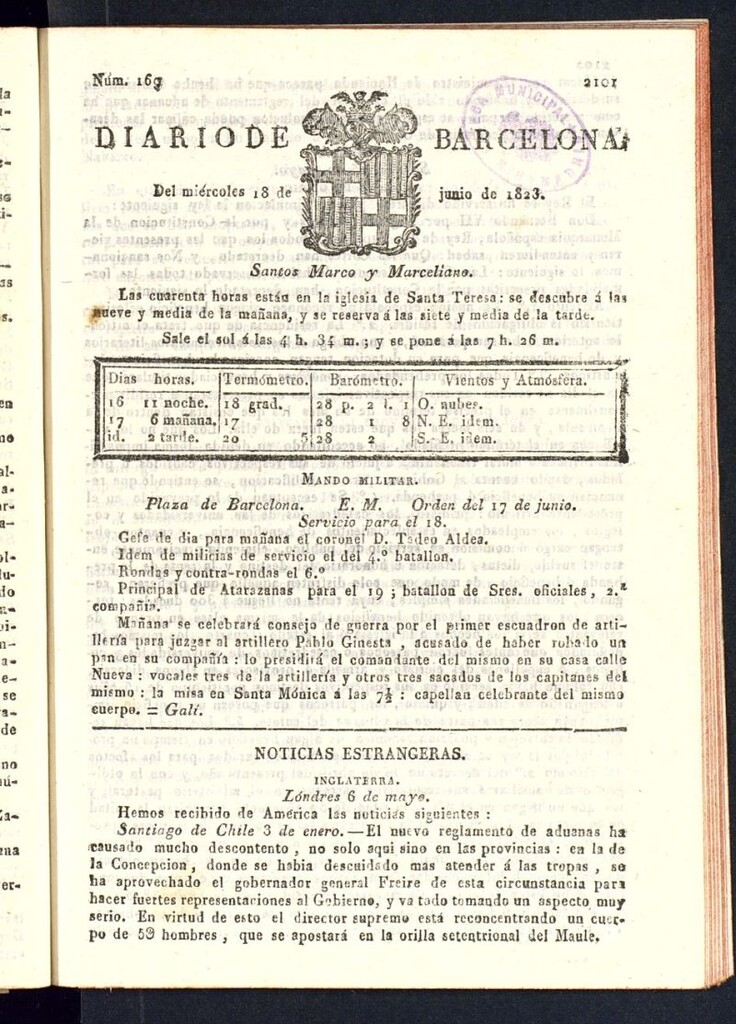 Núm. 169
2101
DIARIO DE BARCELONA,
Del miércoles 18 de junio de 1823.
Santos Marco y Marceliano.
Las cuarenta horas están en la iglesia de Santa Teresa: se descubre á las
nueve y media de la mañana, y se reserva á las siete y media de la tarde.
Sale el sol á las 4 h. 34 m.; y se pone á las 7 h. 26 m.
Dias horas. Termómetro. Barómetro. Vientos y Atmósfera.
16 11 noche. 18 grad. 28 p. 2 l. 1 O. nubes.
17 6 mañana. 17 28 1 8 N. E. idem.
id. 2 tarde. 20 5 28 2 S. E. idem.
MANDO MILITAR.
Plaza de Barcelona. E. M. Orden del 17 de junio.
Servicio para el 18.
Gefe de dia para mañana el coronel D. Tadeo Aldea.
Idem de milicias de servicio el del 4.º batallon.
Rondas y contra-rondas el 6.º
Principal de Atarazanas para el 19; batallon de Sres. oficiales, 2.ª
compañía.
Mañana se celebrará consejo de guerra por el primer escuadron de arti-
llería para juzgar al artillero Pablo Ginesta, acusado de haber robado un
pan en su compañía: lo presidirá el comandante del mismo en su casa calle
Nueva: vocales tres de la artillería y otros tres sacados de los capitanes del
mismo: la misa en Santa Mónica á las 7½: capellan celebrante del mismo
cuerpo. = Galí.
NOTICIAS ESTRANGERAS.
INGLATERRA.
Lóndres 6 de mayo.
Hemos recibido de América las noticias siguientes:
Santiago de Chile 3 de enero.—El nuevo reglamento de aduanas ha
causado mucho descontento, no solo aqui sino en las provincias: en la de
la Concepcion, donde se habia descuidado mas atender á las tropas, se
ha aprovechado el gobernador general Freire de esta circunstancia para
hacer fuertes representaciones al Gobierno, y va todo tomando un aspecto muy
serio. En virtud de esto el director supremo está reconcentrando un cuer-
po de 5@ hombres, que se apostará en la orilla setentrional del Maule.